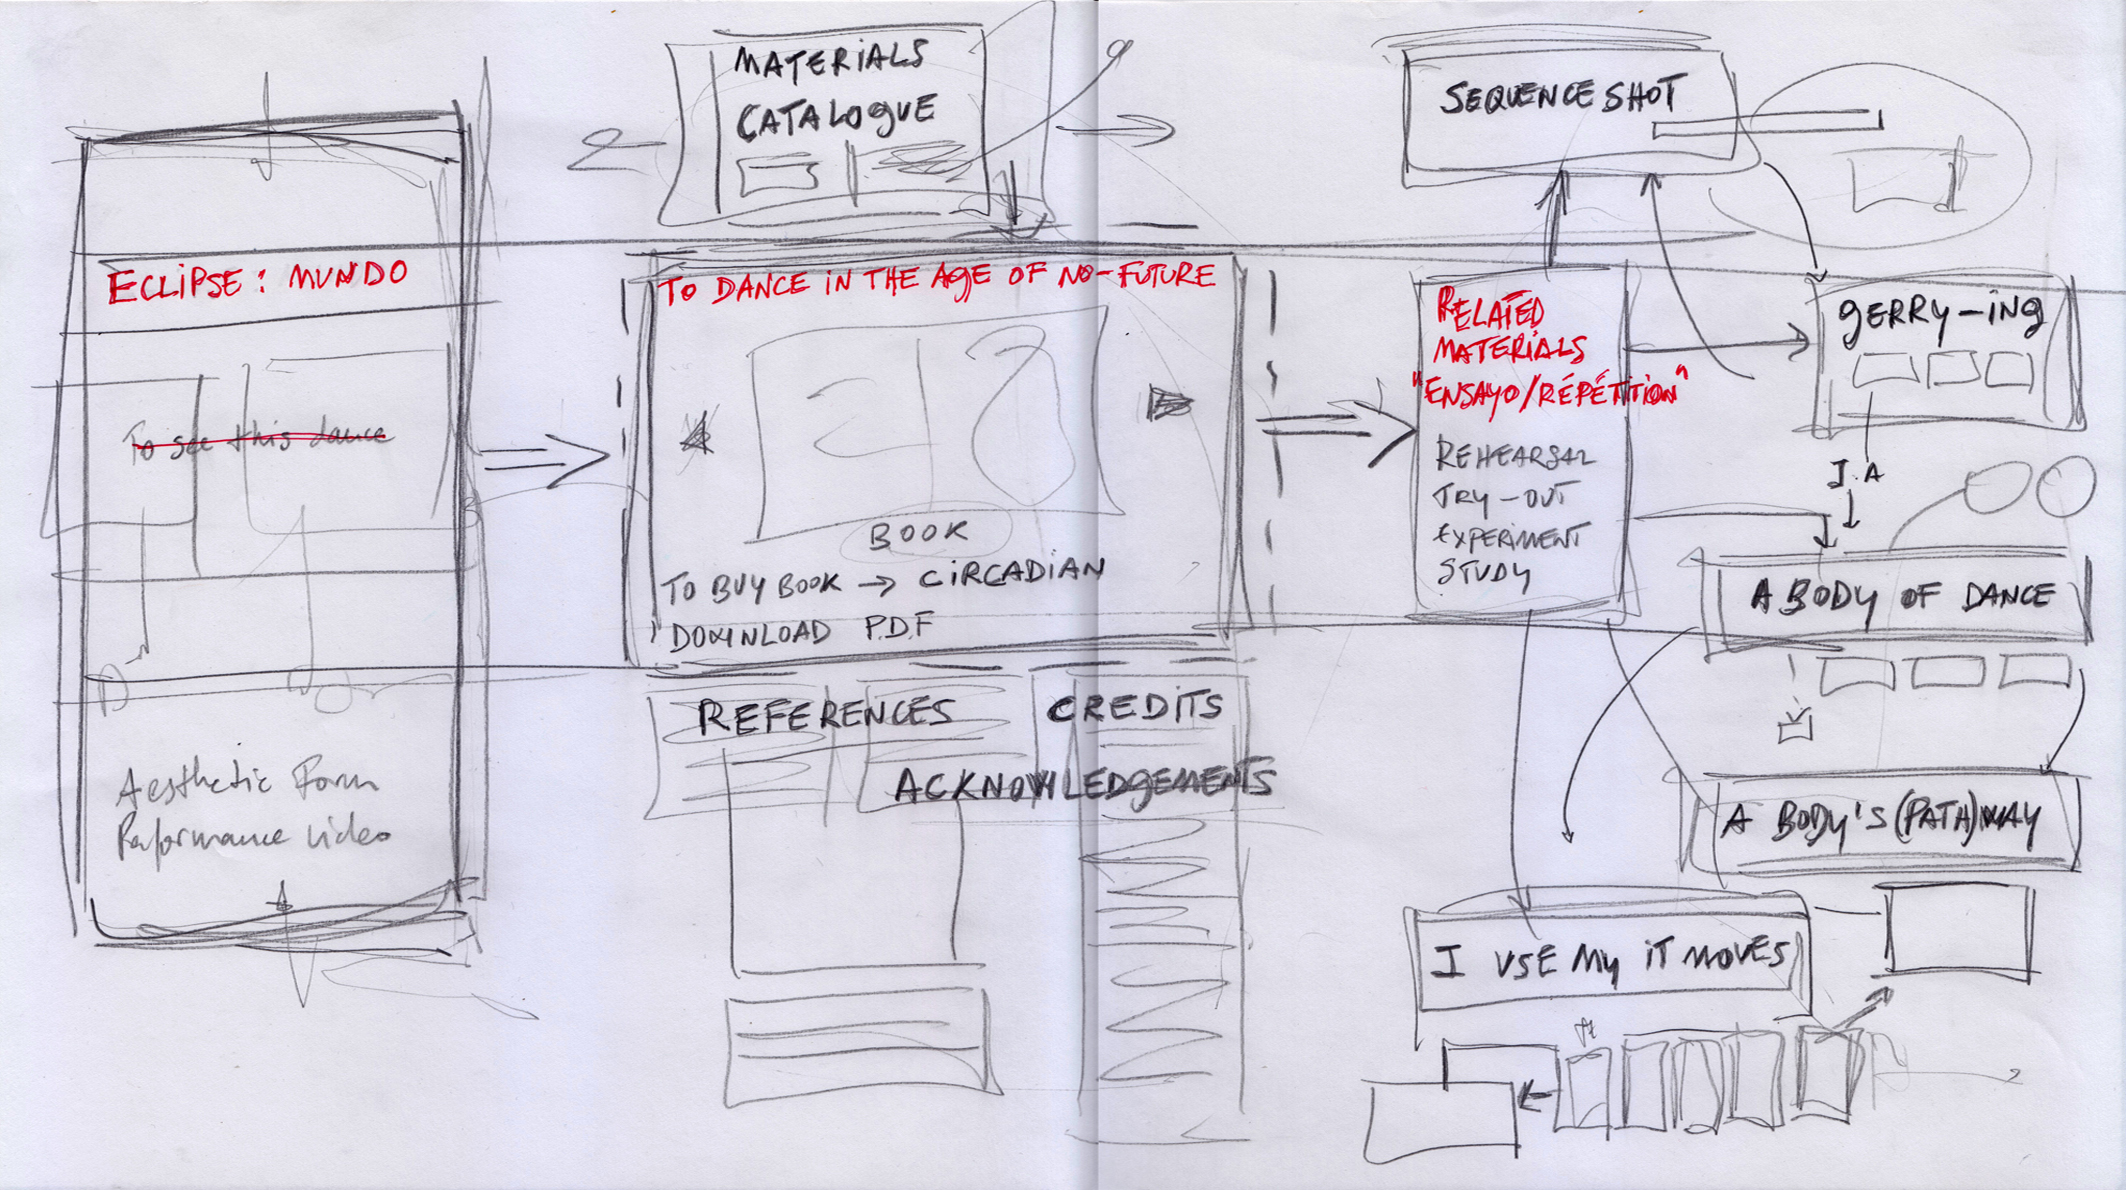 MATERIALS
CATALOGUE
SEQUENCE SHOT
ECLIPSE: MUNDO
To see this dance
Aesthetic Form
Performance video
TO DANCE IN THE AGE OF NO-FUTURE
BOOK
TO BUY BOOK → CIRCADIAN
DOWNLOAD P.D.F
REFERENCES
CREDITS
ACKNOWLEDGEMENTS
RELATED
MATERIALS
"ENSAYO/RÉPÉTITION"
REHEARSAL
TRY-OUT
EXPERIMENT
STUDY
GERRY-ING
J.A
A BODY OF DANCE
A BODY'S (PATH)WAY
I USE MY IT MOVES